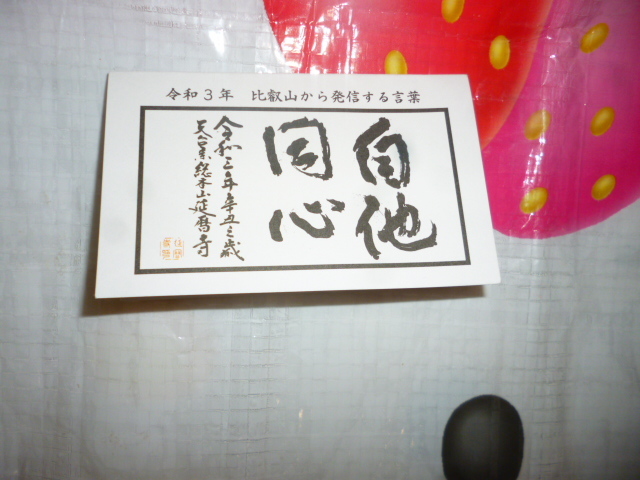 令和3年　比叡山から発信する言葉
自他
同心
令和三年辛丑之歳
天台宗総本山延暦寺